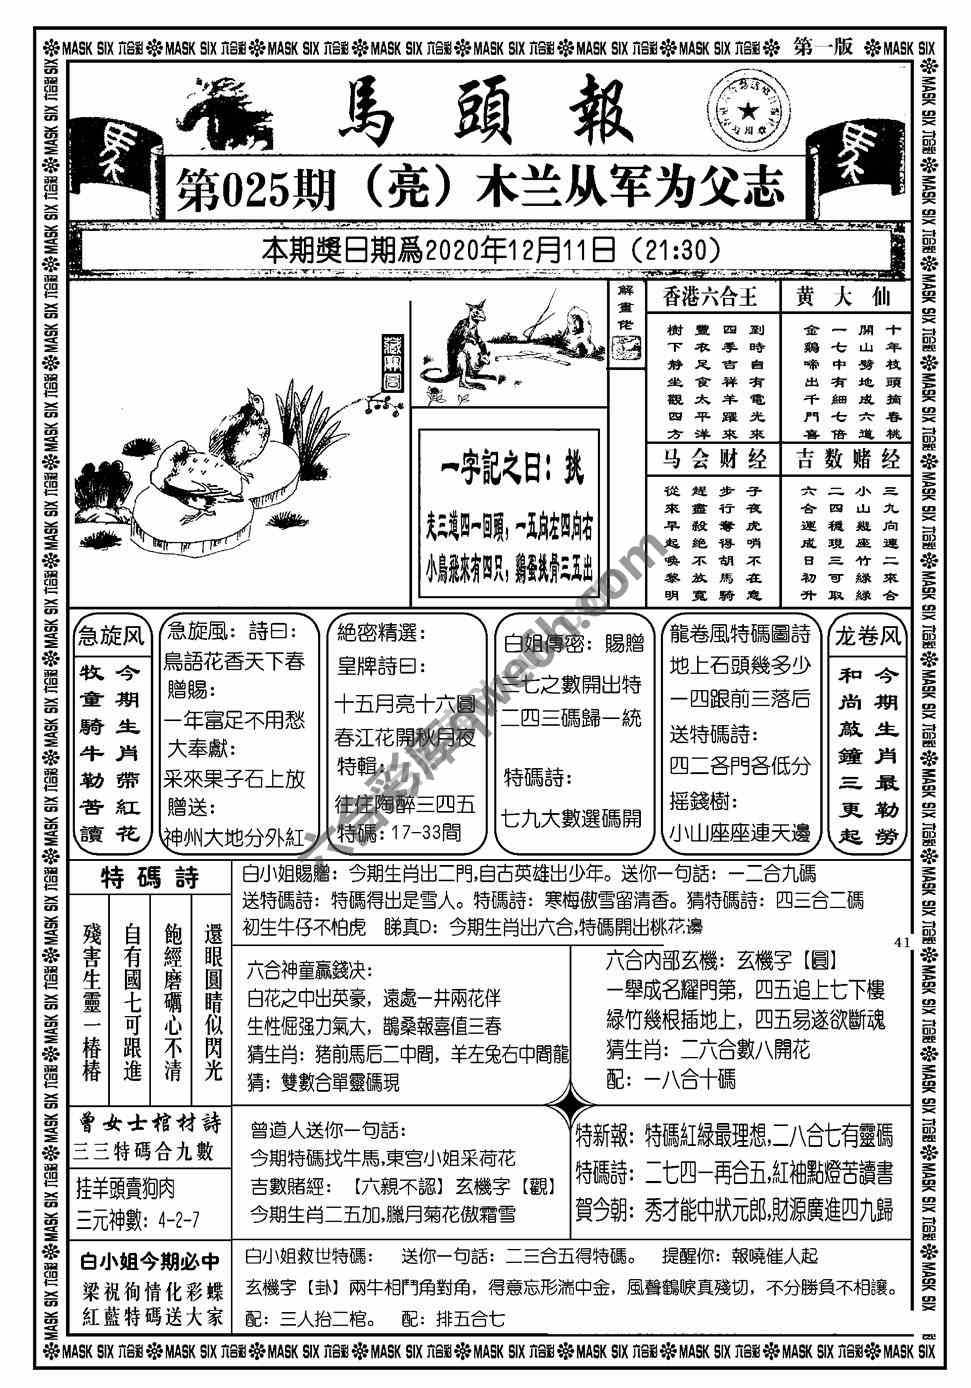 MASK SIX 六合彩 MASK SIX 六合彩 MASK SIX 六合彩 MASK SIX 六合彩 MASK SIX 六合彩 MASK SIX 六合彩 MASK SIX 六合彩 第一版 MASK SIX
馬頭報
第025期（亮）木兰从军为父志
本期獎日期爲2020年12月11日（21:30）
藏寶圖
解畫佬
一字記之日：挑
走三道四一回頭，一五向左四向右
小鳥飛來有四只，鷄蛋挑骨三五出
香港六合王
到時自有電光來
四季吉祥羊躍來
豐衣足食太平洋
樹下静坐觀四方
黄大仙
十年枝頭摘春桃
開山劈地成六道
一七中有細七倍
金鷄啼出千門喜
马会财经
子夜虎哨不在意
步行奪得胡馬騎
趕盡殺絶不放寬
從來早起喚黎明
吉数赌经
三九向連二來合
小山幾座竹緑緑
二四穩現三可取
六合運成日初升
急旋风
今期生肖帶紅花
牧童騎牛勒苦讀
急旋風：詩曰：
鳥語花香天下春
贈賜：
一年富足不用愁
大奉獻：
采來果子石上放
贈送：
神州大地分外紅
絶密精選：
皇牌詩曰：
十五月亮十六圓
春江花開秋月夜
特輯：
往住陶醉三四五
特碼：17-33間
白姐傳密：賜贈
三七之數開出特
二四三碼歸一統
特碼詩：
七九大數選碼開
龍卷風特碼圖詩
地上石頭幾多少
一四跟前三落后
送特碼詩：
四二各門各低分
摇錢樹：
小山座座連天邊
龙卷风
今期生肖最勤勞
和尚敲鐘三更起
特碼詩
還眼圓睛似閃光
飽經磨礪心不清
自有國七可跟進
殘害生靈一樁樁
白小姐賜贈：今期生肖出二門,自古英雄出少年。送你一句話：一二合九碼
送特碼詩：特碼得出是雪人。特碼詩：寒梅傲雪留清香。猜特碼詩：四三合二碼
初生牛仔不怕虎 睇真D：今期生肖出六合,特碼開出桃花邊
41
六合神童贏錢决：
白花之中出英豪，遠處一井兩花伴
生性倔强力氣大，鵲桑報喜值三春
猜生肖：猪前馬后二中間，羊左兔右中間龍
猜：雙數合單靈碼現
六合内部玄機：玄機字【圓】
一舉成名耀門第，四五追上七下樓
緑竹幾根插地上，四五易遂欲斷魂
猜生肖：二六合數八開花
配：一八合十碼
曾女士棺材詩
三三特碼合九數
挂羊頭賣狗肉
三元神數：4-2-7
曾道人送你一句話：
今期特碼找牛馬,東宫小姐采荷花
吉數賭經：【六親不認】玄機字【觀】
今期生肖二五加,臘月菊花傲霜雪
特新報：特碼紅緑最理想,二八合七有靈碼
特碼詩：二七四一再合五,紅袖點燈苦讀書
賀今朝：秀才能中狀元郎,財源廣進四九歸
白小姐今期必中
梁祝徇情化彩蝶
紅藍特碼送大家
白小姐救世特碼： 送你一句話：二三合五得特碼。 提醒你：報曉催人起
玄機字【卦】兩牛相鬥角對角，得意忘形湍中金，風聲鶴唳真殘切，不分勝負不相讓。
配：三人抬二棺。 配：排五合七
MASK SIX 六合彩 MASK SIX 六合彩 MASK SIX 六合彩 MASK SIX 六合彩 MASK SIX 六合彩 MASK SIX 六合彩 MASK SIX 六合彩 MASK SIX 六合彩 MASK SIX